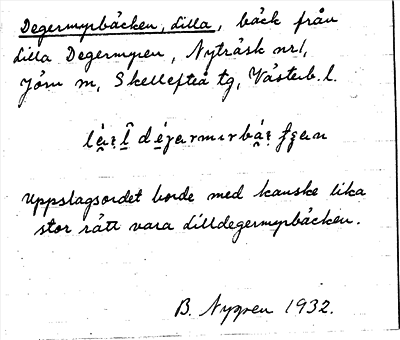 Degermyrbäcken, Lilla, bäck från
Lilla Degermyren, Nyträsk nr1,
Jörn sn, Skellefteå tg, Västerb. l.
Uppslagsordet borde med kanske lika
stor rätt vara Lilldegermyrbäcken.
B. Nygren 1932.